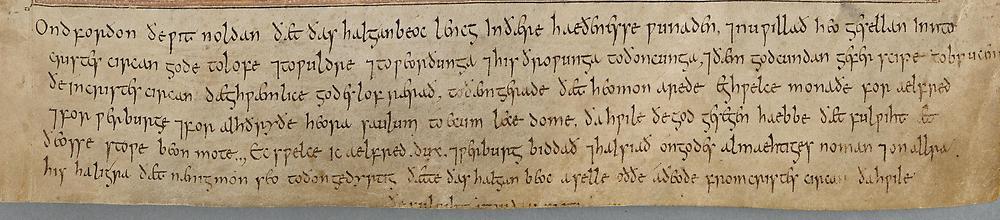 Ond forðon ðe wit noldan ðæt ðas halgan beoc lencg in ðære haeðenesse ƿunaden, ⁊ nu ƿillað heo gesellan inn to
cristes circan gode to lofe ⁊ to ƿuldre ⁊ to ƿeorðunga, ⁊ his ðroƿunga to ðoncunga, ⁊ ðæm godcundan geferscipe to brucenne
ðe in cristes circan dæghƿæmlice godes lof rærað, to ðæm gerade ðæt heo mon arede eghƿelce monaðe for aelfred
⁊ for ƿerburge ⁊ for alhðryðe heora saulum to ecum lecedome, ða hƿile ðe god gesegen haebbe ðæt fulƿiht æt
ðeosse stoƿe beon mote., Ec sƿelce ic aelfred. dux. ⁊ ƿerburg biddað ⁊ halsiað on godes almaehtiges noman ⁊ on allra
his haligra ðæt nænig mon seo to ðon gedyrstig ðætte ðas halgan beoc aselle oððe aðeode from cristes circan ða hƿile